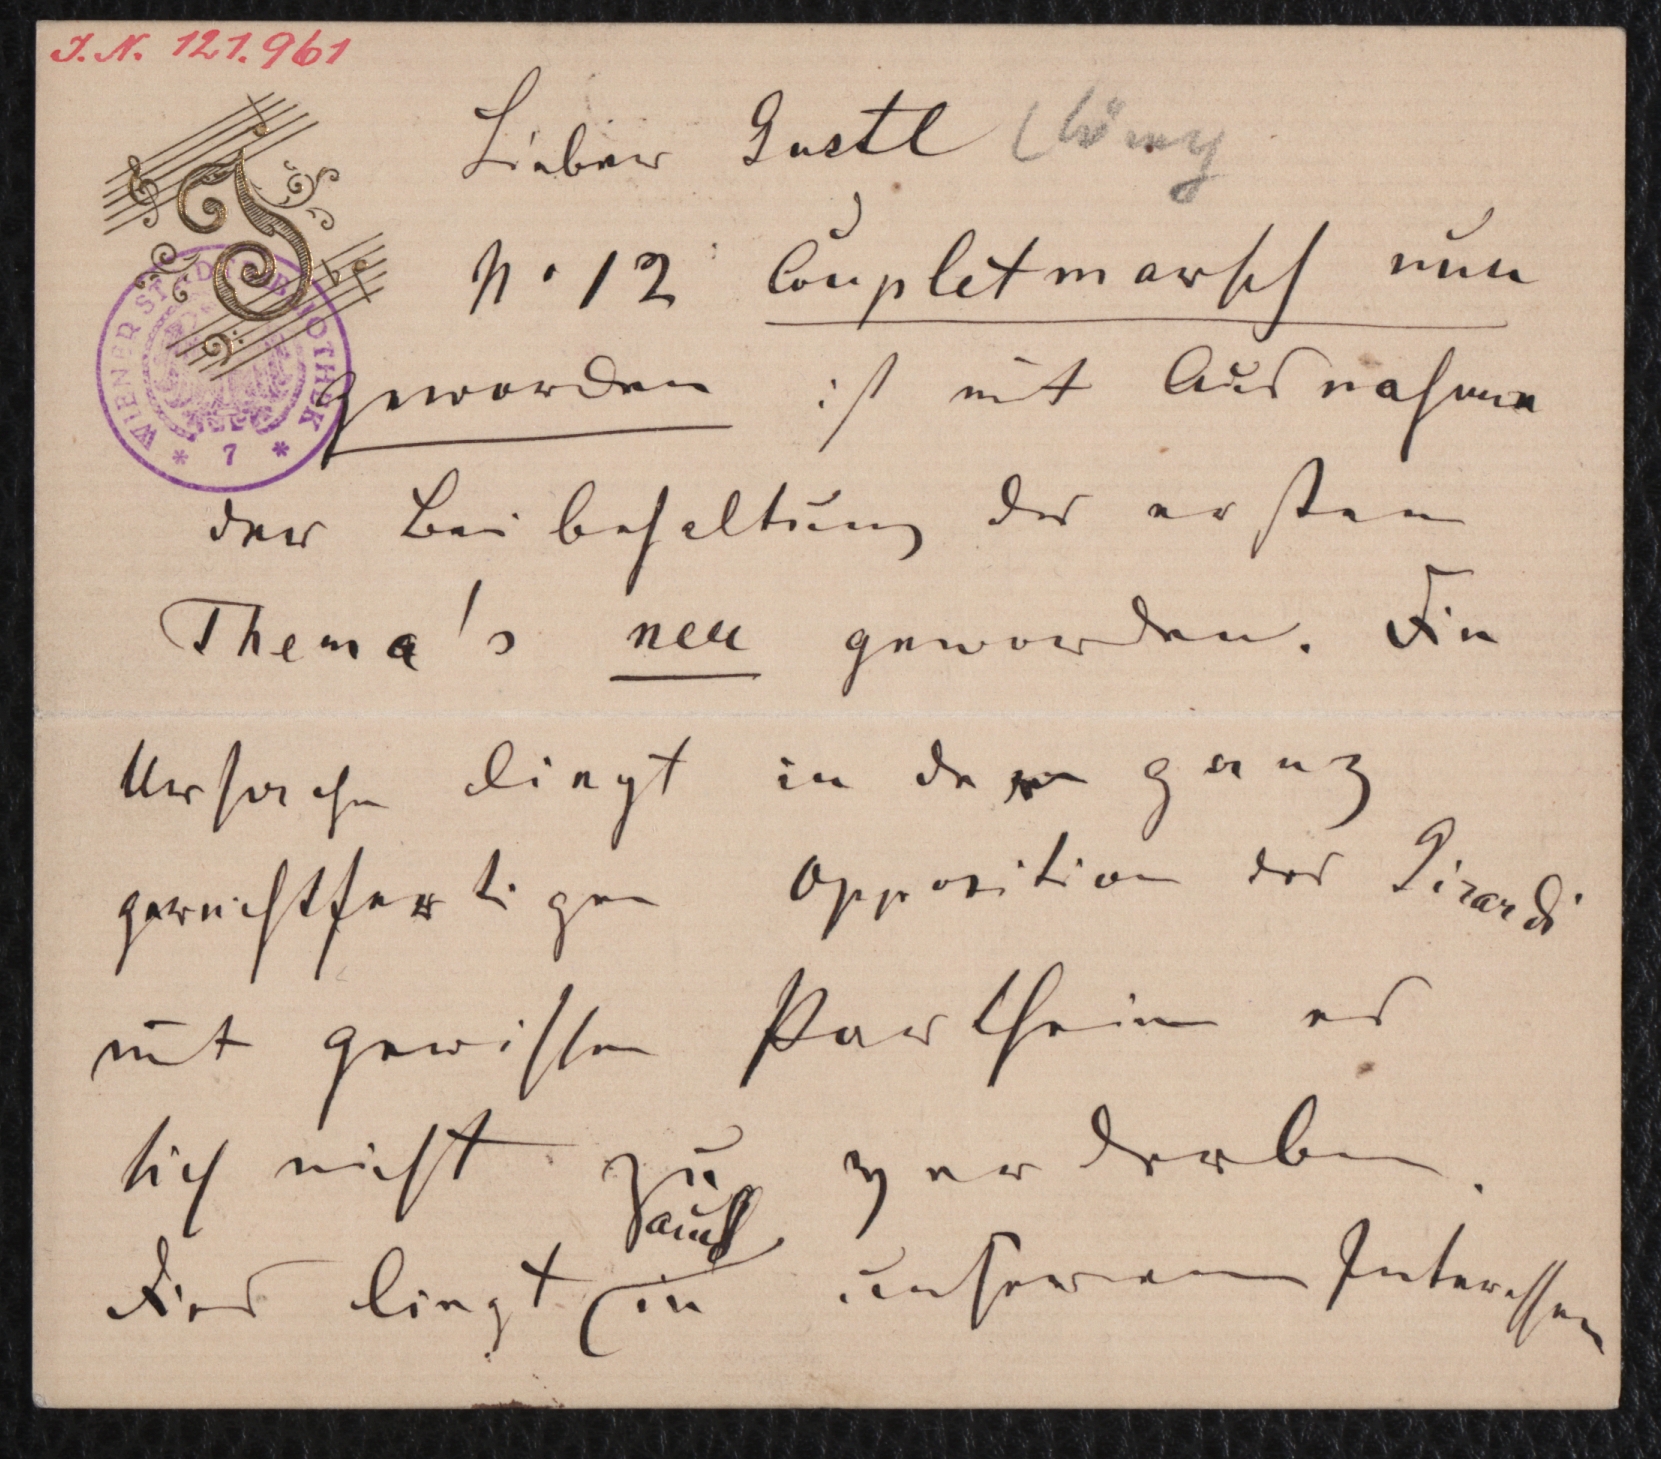 I.N. 121.961
Lieber Gustl Löwy
No 12 Coupletmarsch neu
geworden ist mit Ausnahme
der Beibehaltung des ersten
Thema's neu geworden. Die
Ursache liegt in der ganz
gerechtfertigen Opposition des Girardi
mit gewissen Partheien es
sich nicht zu verderben.
auch
Dies liegt in unserem Interessen
WIENER STADTBIBLIOTHEK
* 7 *